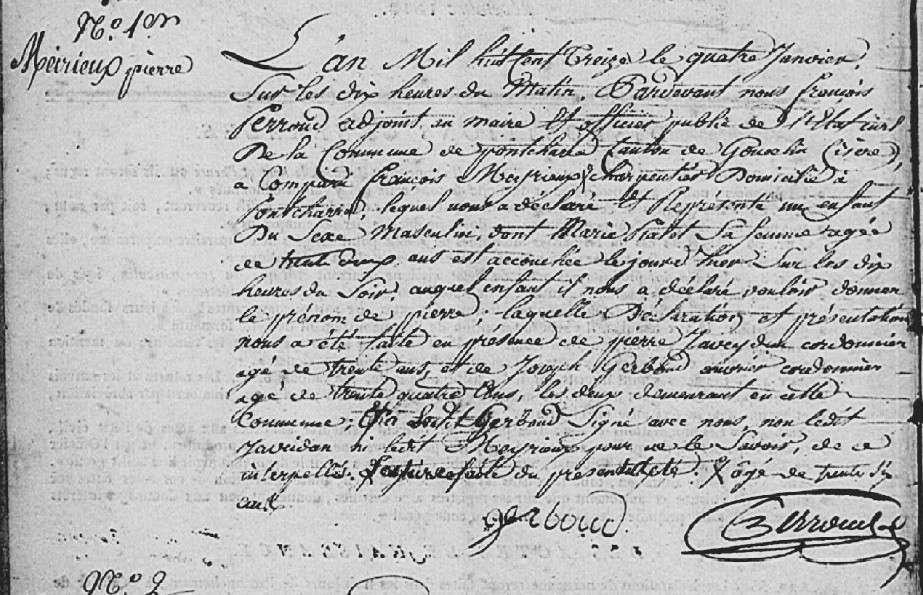 N.o 1.er
Meirieux pierre
L'an Mil huit cent Treize le quatre Janvier
Sur les dix heures du Matin, Pardevant nous françois
Perroud adjoint au maire Et officier public de l'Etat civil
De la Commune de pontcharra Canton de Goncelin (isere),
a Comparu françois Meyrieux X charpentier Domicilié à
Pontcharra, lequel nous a déclaré Et Représenté un enfant
Du Sexe Masculin, dont Marie Sa femme agée
de trente deux ans est accouchée le jour d'hier Sur les dix
heures du Soir, auquel enfant il nous a déclaré vouloir donner
le prénom de pierre; laquelle Déclaration et présentation
nous a été faite en présence de pierre cordonnier
agé de trente ans, et de Joseph Gerboud ouvrier cordonnier
agé de trente quatre ans, les deux demeurant en cette
Commune; Ledit Gerboud Signé avec nous, non ledit
ni ledit Meyrieux pour ne le Savoir, de ce
interpellés. Lecture faite du présent acte. X agé de trente
ans
gerboud. Perroud
N.o 2